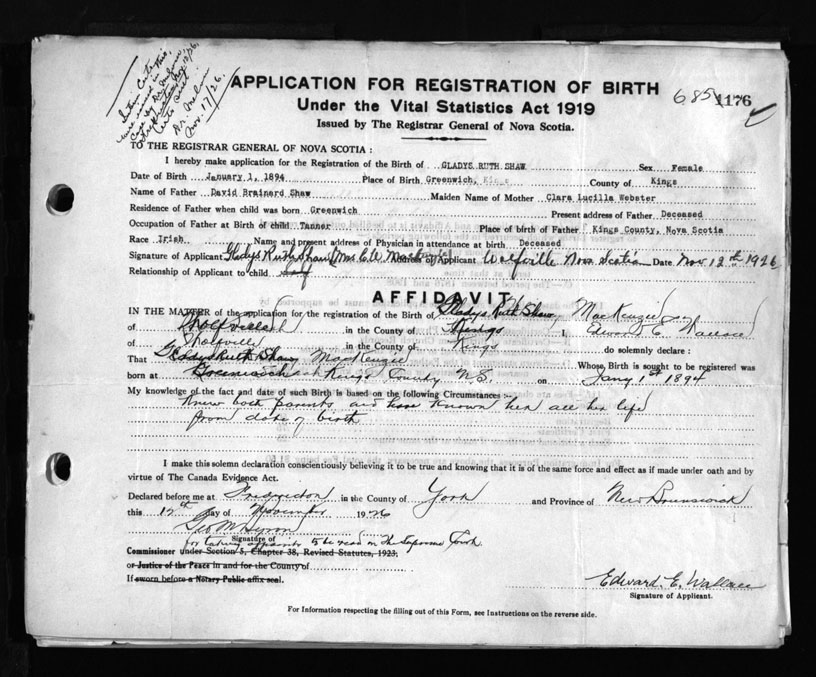 Dr. Melvin
Nov. 17/26.
APPLICATION FOR REGISTRATION OF BIRTH
685 1176
Under the Vital Statistics Act 1919
Issued by The Registrar General of Nova Scotia.
TO THE REGISTRAR GENERAL OF NOVA SCOTIA :
I hereby make application for the Registration of the Birth of GLADYS RUTH SHAW Sex Female
Date of Birth January 1, 1894 Place of Birth Greenwich, Kings County of Kings
Name of Father David Brainard Shaw Maiden Name of Mother Clara Lucilla Webster
Residence of Father when child was born Greenwich Present address of Father Deceased
Occupation of Father at Birth of child Tanner Place of birth of Father Kings County, Nova Scotia
Race Irish Name and present address of Physician in attendance at birth Deceased
Signature of Applicant Gladys Ruth Shaw (Mrs C.W. MacKenzie) Address of Applicant Wolfville Nova Scotia Date Nov 12th 1926
Relationship of Applicant to child self
AFFIDAVIT
IN THE MATTER of the application for registration of the Birth of Gladys Ruth Shaw MacKenzie
of Wolfville in the County of Kings I, Edward E. Wallace
of Wolfville in the County of Kings do solemnly declare :
That Gladys Ruth Shaw MacKenzie Whose Birth is sought to be registered was
born at Greenwich Kings County N.S. on Jany 1st 1894
My knowledge of the fact and date of such Birth is based on the following Circumstances :-
Knew both parents and have known her all her life
from date of birth
I make this solemn declaration conscientiously believing it to be true and knowing that it is of the same force and effect as if made under oath and by
virtue of The Canada Evidence Act.
Declared before me at Fredericton in the County of York and Province of New Brunswick
this 12th day of November 1926
Geo M Byron
Signature of
for taking affidavits to be read in the Supreme Court
Commissioner under Section 5, Chapter 38, Revised Statutes, 1923;
or Justice of the Peace in and for the County of
If sworn before a Notary Public affix seal.
Edward. E. Wallace
Signature of Applicant.
For Information respecting the filling out of this Form, see Instructions on the reverse side.